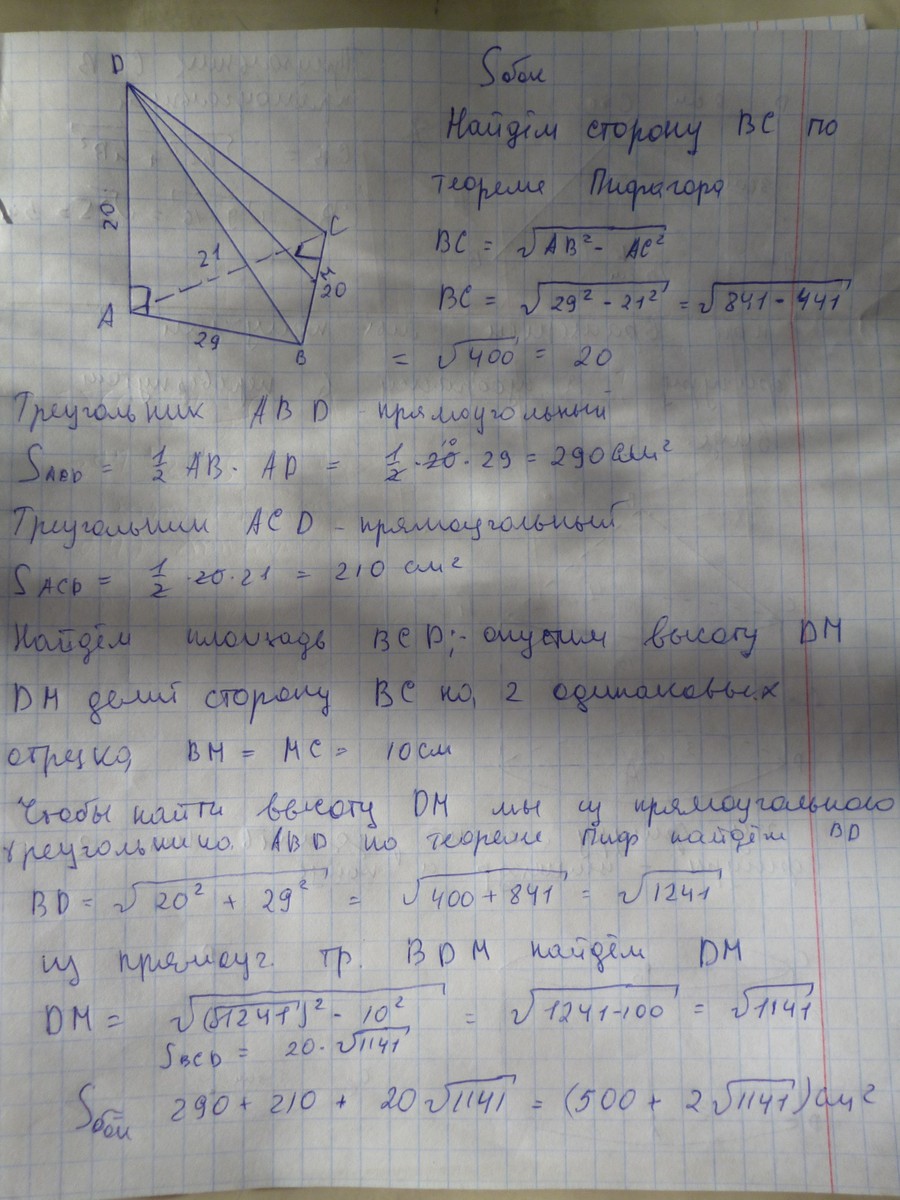 D
20
21
C
M
20
A
29
B
Sбок
Найдём сторону BC по
теореме Пифагора
BC = √AB² - AC²
BC = √29² - 21² = √841 - 441
= √400 = 20
Треугольник ABD - прямоугольный
S ABD = 1/2 AB · AD = 1/2 · 20 10 · 29 = 290 см²
Треугольник ACD - прямоугольный
S ACD = 1/2 · 20 · 21 = 210 см²
Найдём площадь BCD; - опустим высоту DM
DM делит сторону BC на 2 одинаковых
отрезка BM = MC = 10 см
Чтобы найти высоту DM мы из прямоугольного
треугольника ABD по теореме Пиф найдём BD
BD = √20² + 29² = √400 + 841 = √1241
из прямоуг. тр. BDM найдём DM
DM = √(√1241)² - 10² = √1241-100 = √1141
S BCD = 20 · √1141
Sбок 290 + 210 + 20√1141 = (500 + 2√1141) см²